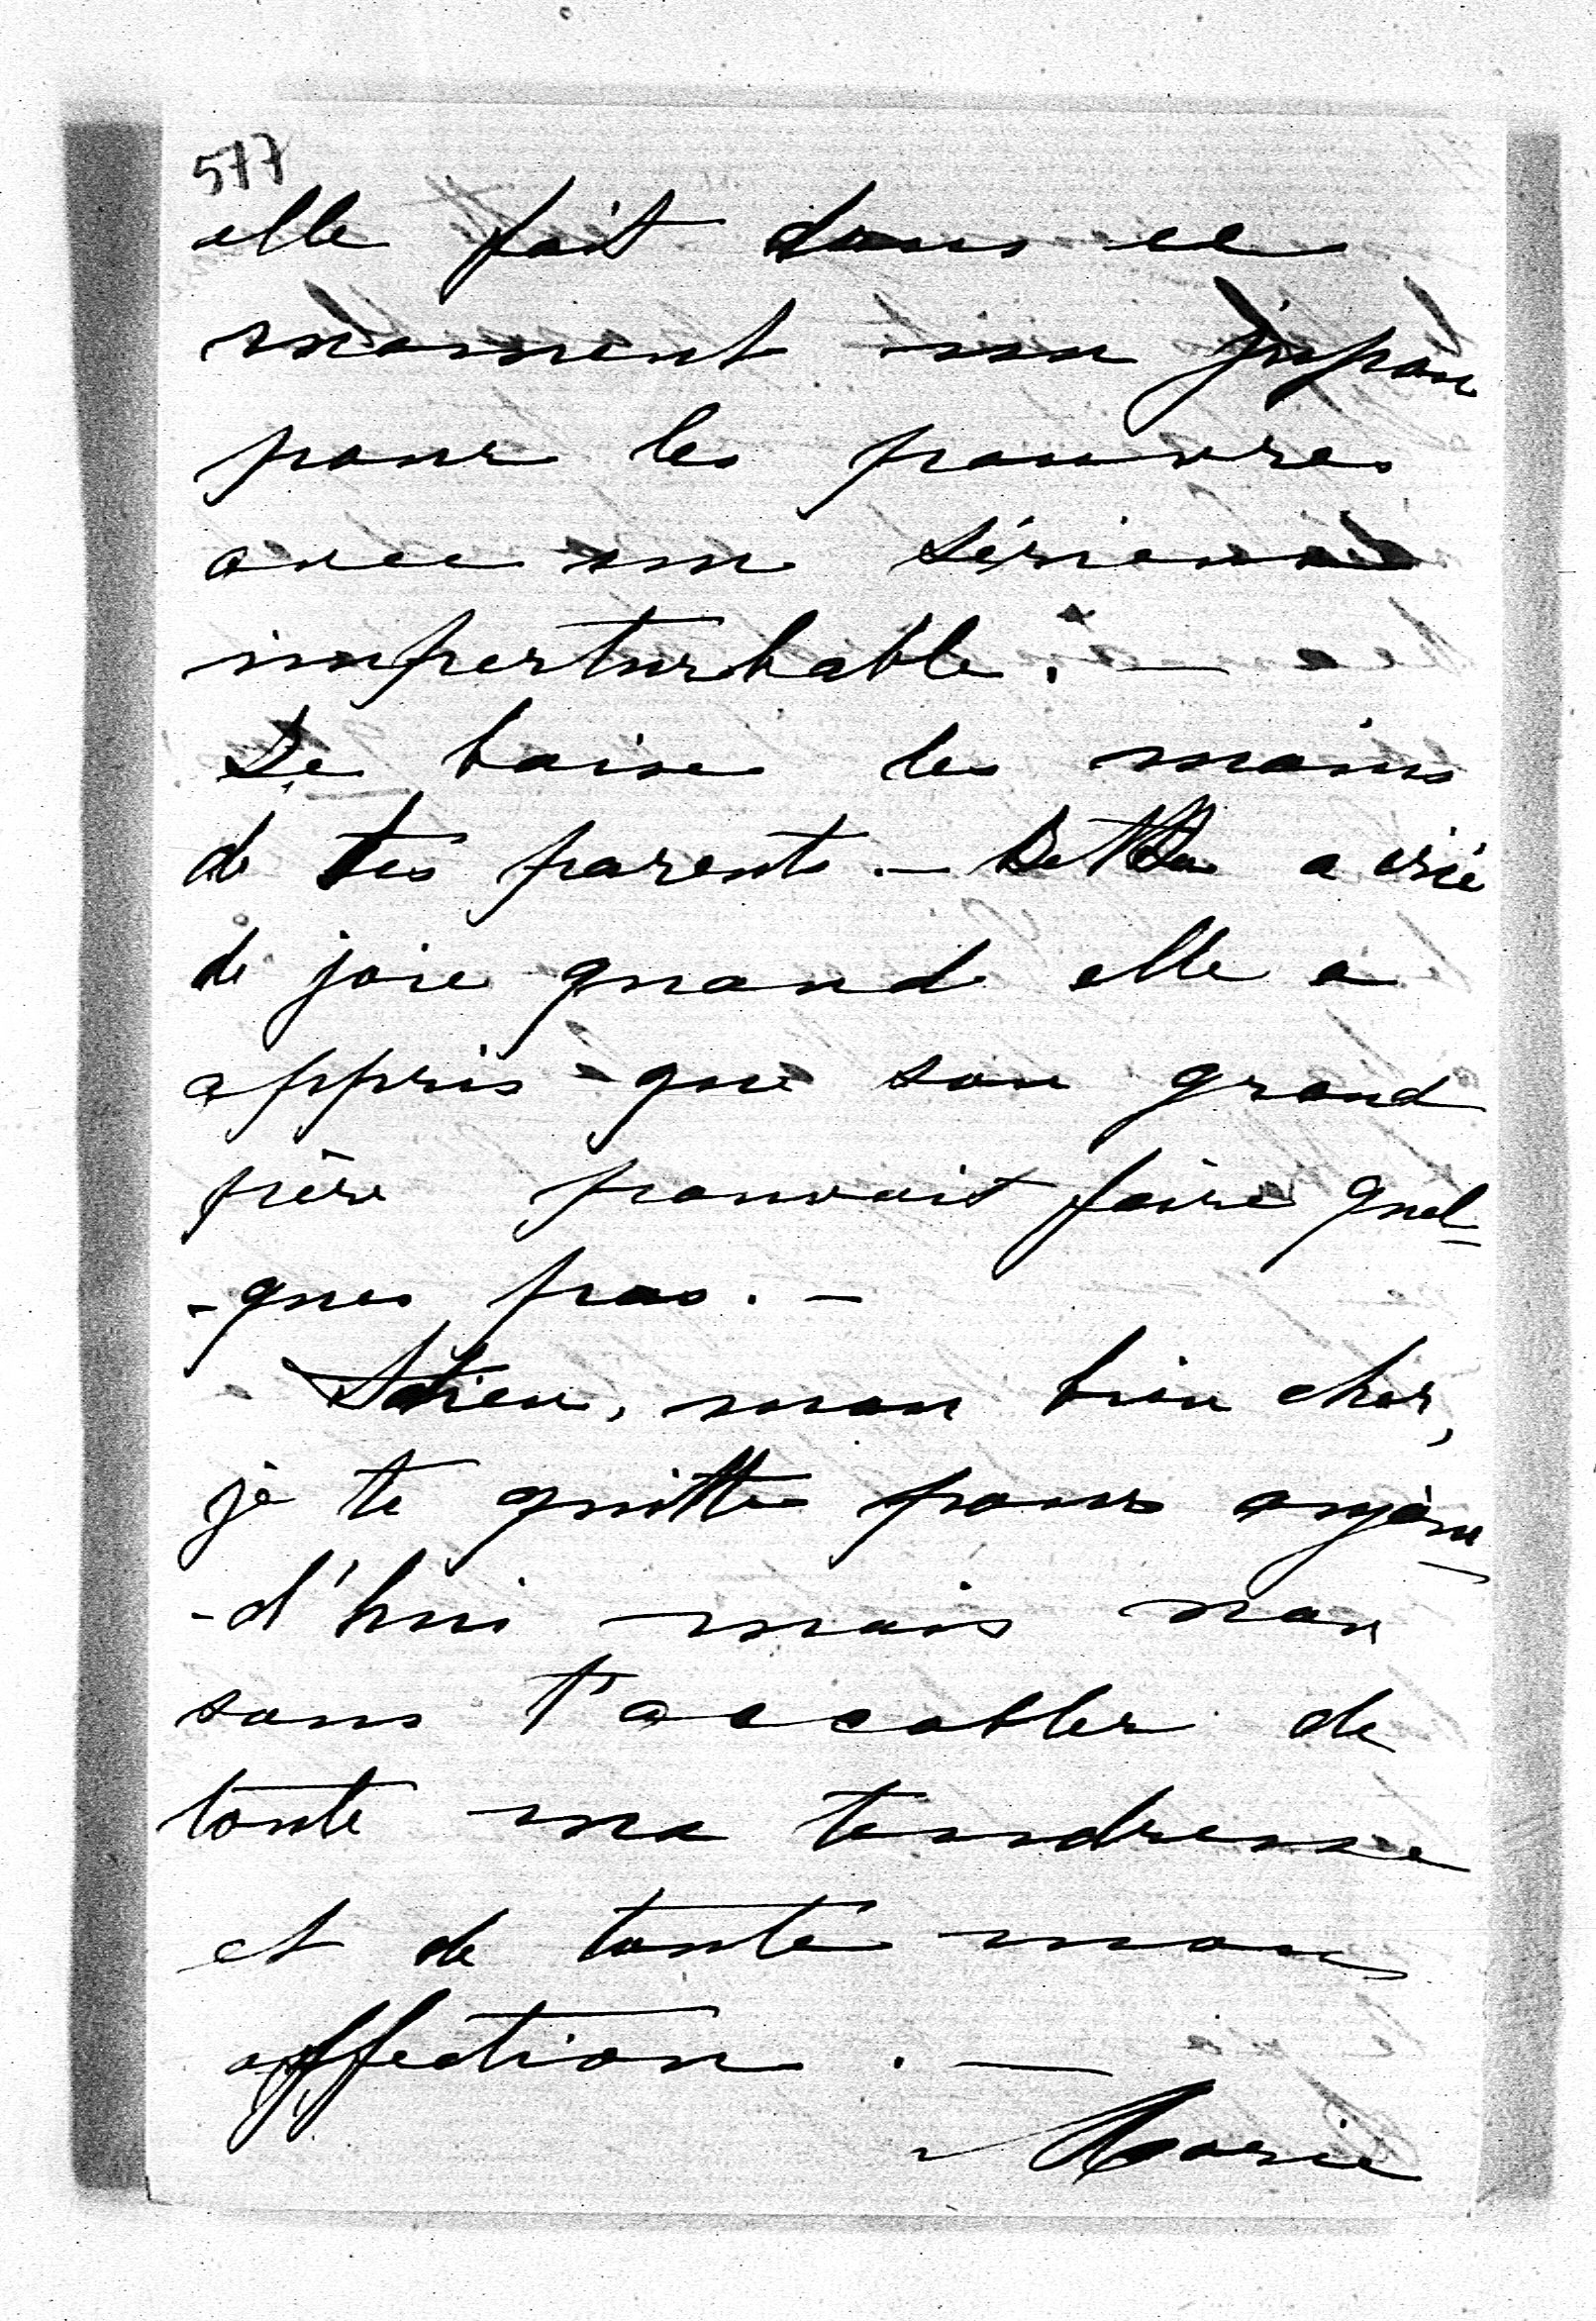 577
elle fait dans ce
moment un jupon
pour les pauvres
avec un sérieux
imperturbable. —
Je baise les mains
de tes parents. — Detta a crié
de joie quand elle a
appris que son grand
père pouvait faire quel=
-ques pas. —
Adieu, mon bien cher,
je te quitte pour aujour
-d'hui mais non
sans t'accabler de
toute ma tendresse
et de toute mon
affection. —
Marie